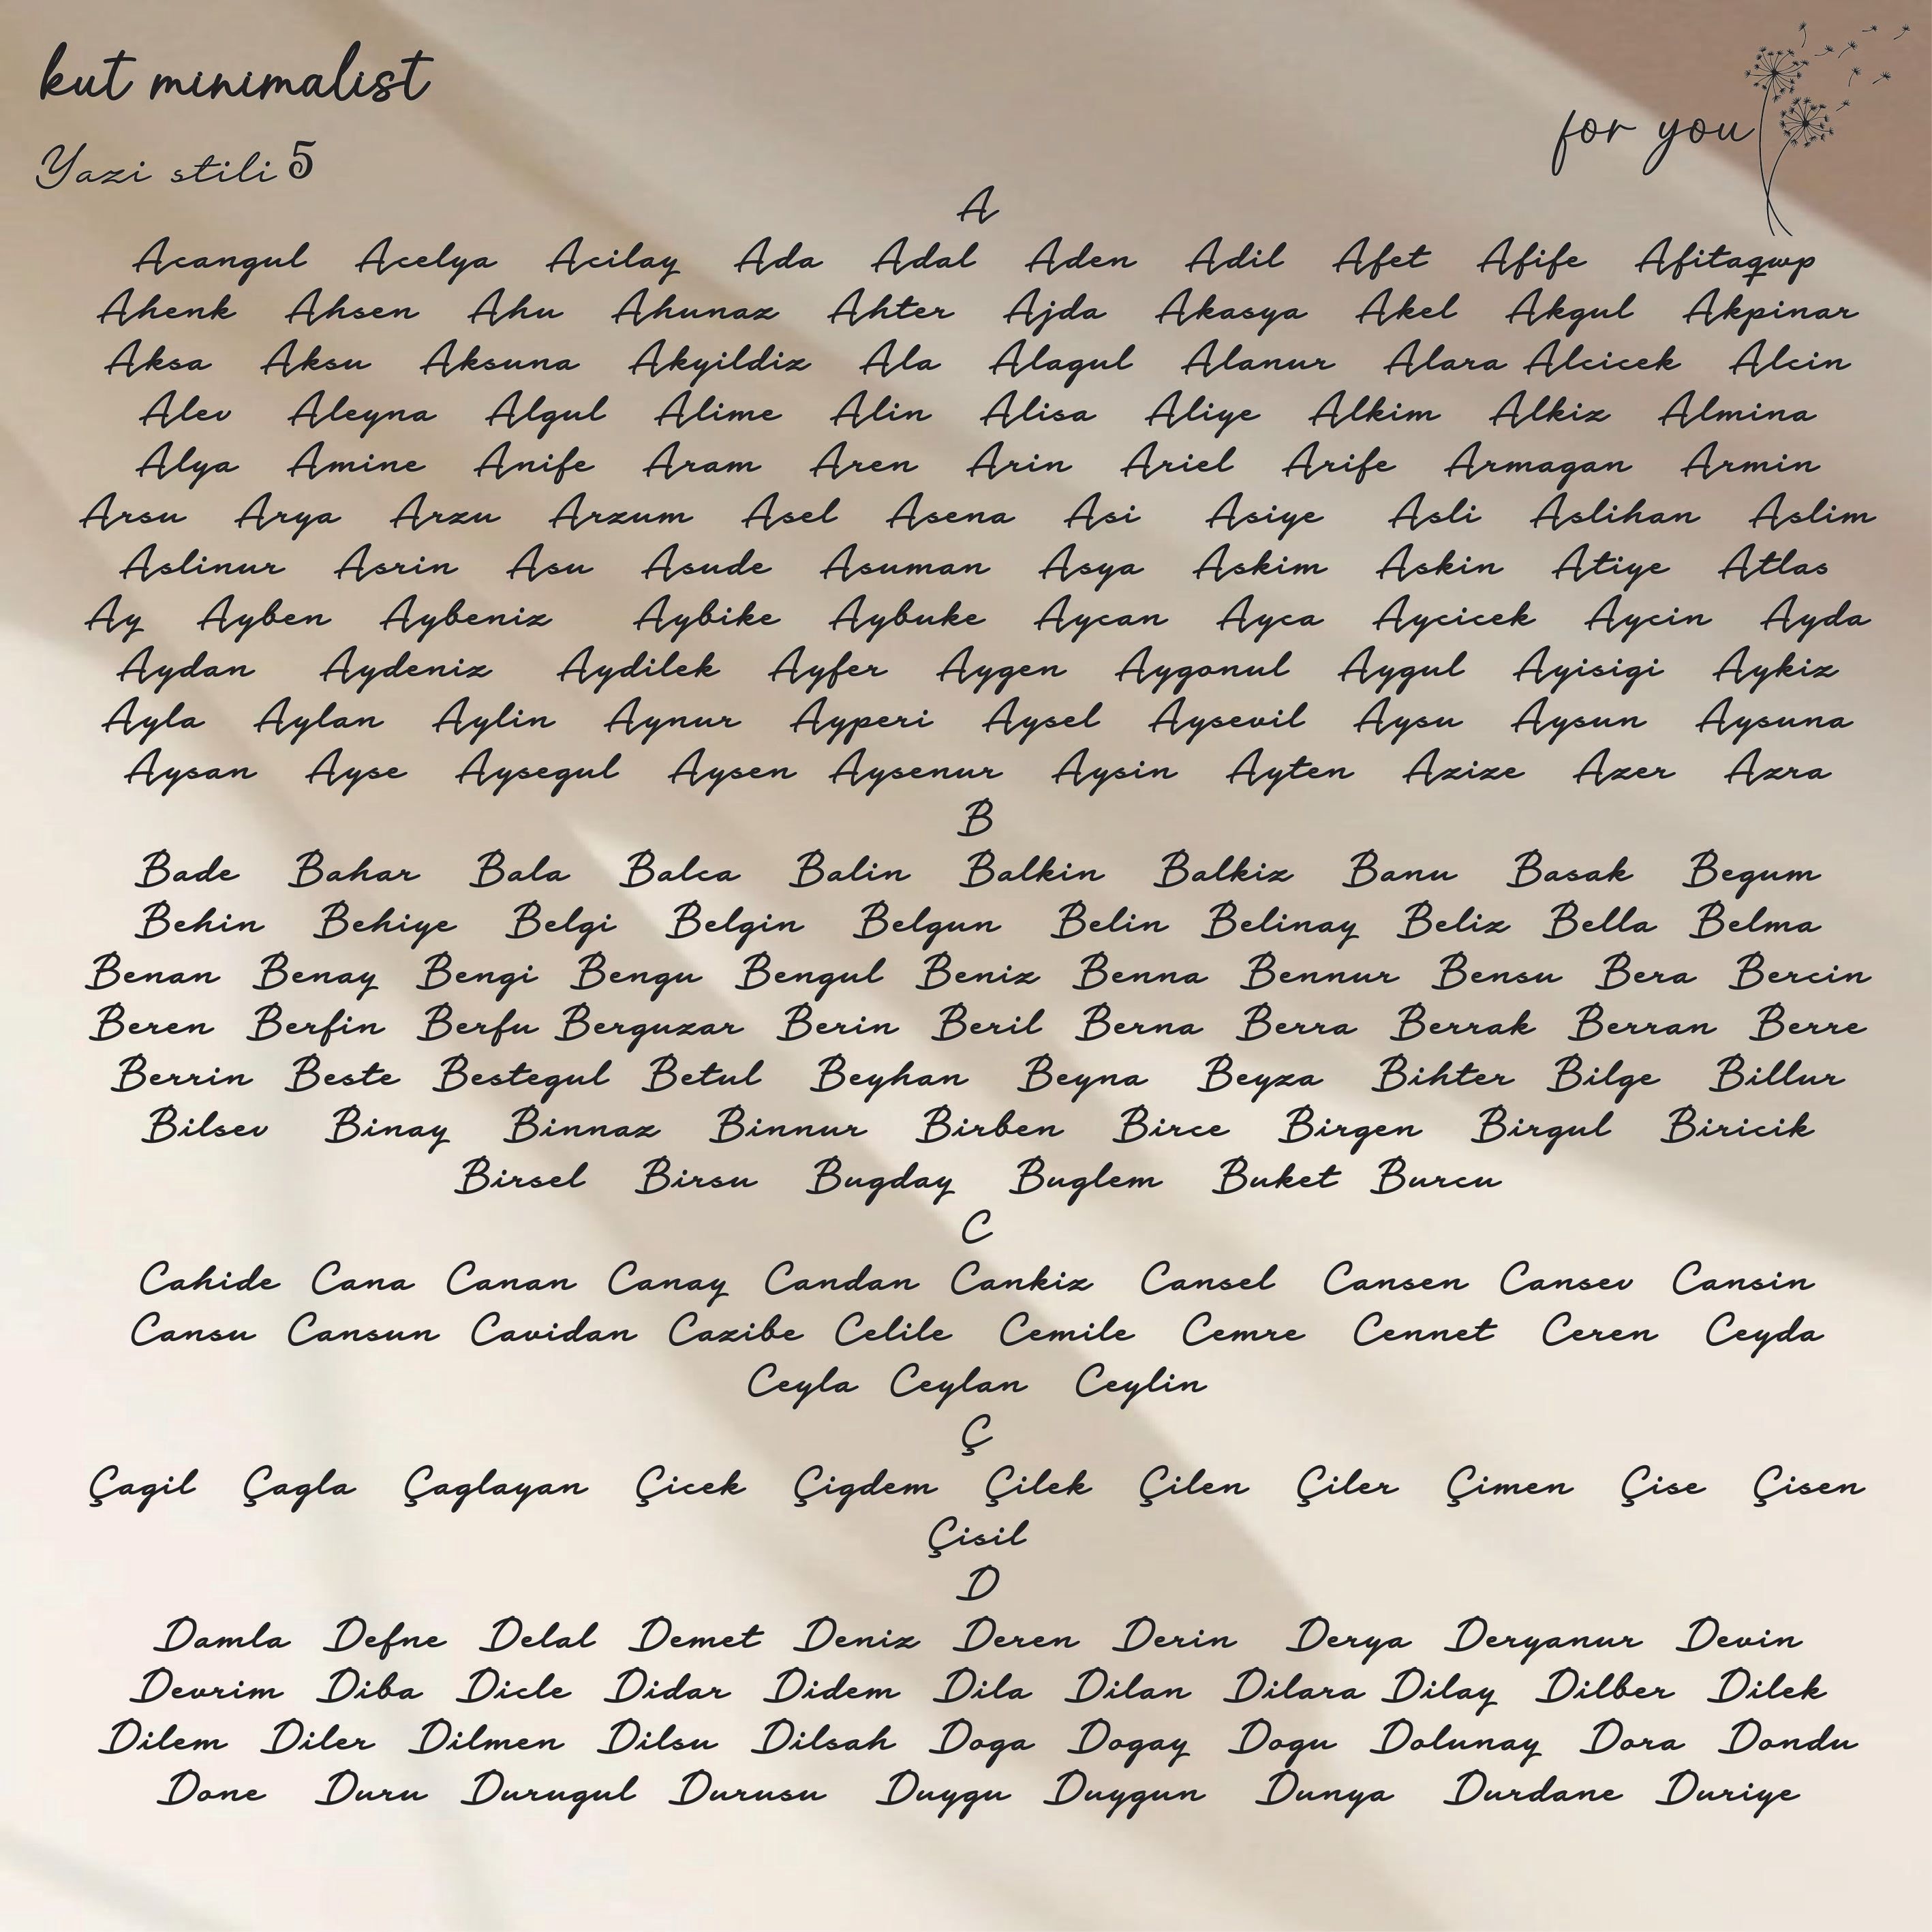 kut minimalist
for you
Yazi stili 5
A
Acangul Acelya Acilay Ada Adal Aden Adil Afet Afife Afitaqwp
Ahenk Ahsen Ahu Ahunaz Ahter Ajda Akasya Akel Akgul Akpinar
Aksa Aksu Aksuna Akyildiz Ala Alagul Alanur Alara Alcicek Alcin
Alev Aleyna Algul Alime Alin Alisa Aliye Alkim Alkiz Almina
Alya Amine Anife Aram Aren Arin Ariel Arife Armagan Armin
Arsu Arya Arzu Arzum Asel Asena Asi Asiye Asli Aslihan Aslim
Aslinur Asrin Asu Asude Asuman Asya Askim Askin Atiye Atlas
Ay Ayben Aybeniz Aybike Aybuke Aycan Ayca Aycicek Aycin Ayda
Aydan Aydeniz Aydilek Ayfer Aygen Aygonul Aygul Ayisigi Aykiz
Ayla Aylan Aylin Aynur Ayperi Aysel Aysevil Aysu Aysun Aysuna
Aysan Ayse Aysegul Aysen Aysenur Aysin Ayten Azize Azer Azra
B
Bade Bahar Bala Balca Balin Balkin Balkiz Banu Basak Begum
Behin Behiye Belgi Belgin Belgun Belin Belinay Beliz Bella Belma
Benan Benay Bengi Bengu Bengul Beniz Benna Bennur Bensu Bera Bercin
Beren Berfin Berfu Berguzar Berin Beril Berna Berra Berrak Berran Berre
Berrin Beste Bestegul Betul Beyhan Beyna Beyza Bihter Bilge Billur
Bilsev Binay Binnaz Binnur Birben Birce Birgen Birgul Biricik
Birsel Birsu Bugday Buglem Buket Burcu
C
Cahide Cana Canan Canay Candan Cankiz Cansel Cansen Cansev Cansin
Cansu Cansun Cavidan Cazibe Celile Cemile Cemre Cennet Ceren Ceyda
Ceyla Ceylan Ceylin
Ç
Çagil Çagla Çaglayan Çicek Çigdem Çilek Çilen Çiler Çimen Çise Çisen
Çisil
D
Damla Defne Delal Demet Deniz Deren Derin Derya Deryanur Devin
Devrim Diba Dicle Didar Didem Dila Dilan Dilara Dilay Dilber Dilek
Dilem Diler Dilmen Dilsu Dilsah Doga Dogay Dogu Dolunay Dora Dondu
Done Duru Durugul Durusu Duygu Duygun Dunya Durdane Duriye